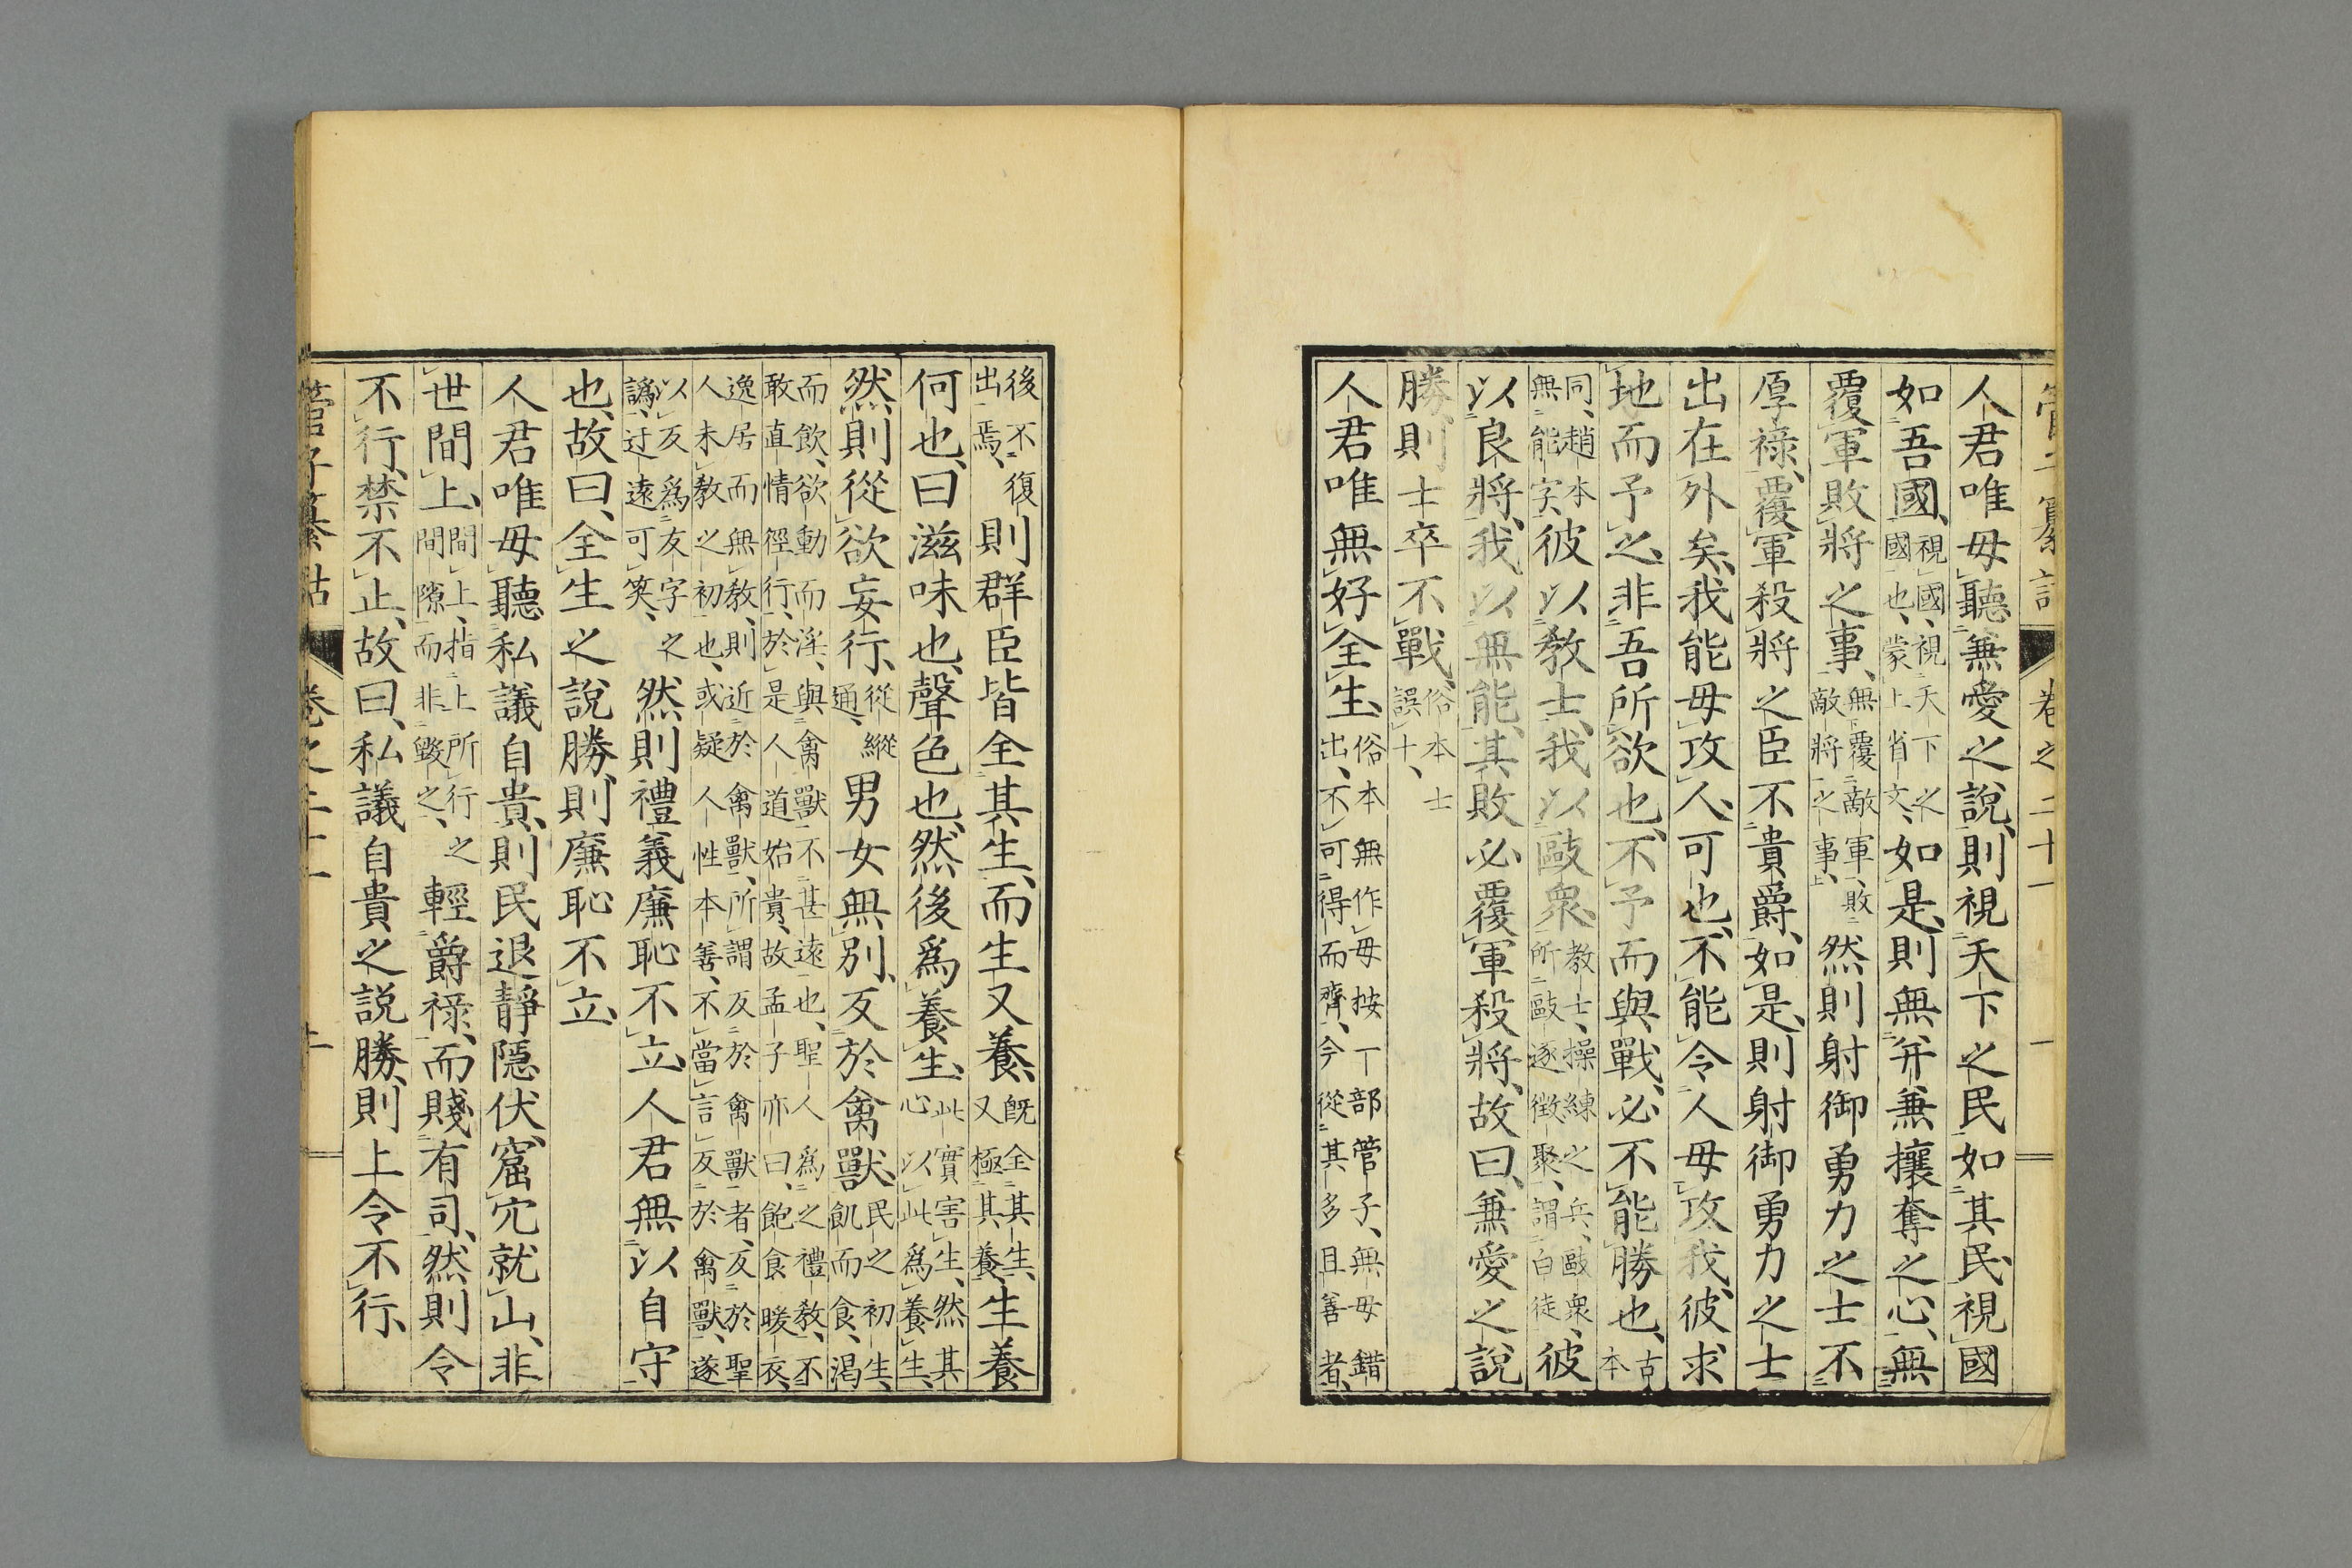 人君唯毋聽兼愛之說、則視天下之民如其民、視國
如吾國、視國、視天下之國也、蒙上省文、如是、則無并兼攘奪之心、無
覆軍敗將之事、無覆敵軍、敗敵將之事上、然則射御勇力之士不
厚祿、覆軍殺將之臣不貴爵、如是、則射御勇力之士
出在外矣、我能毋攻人、可也、不能令人毋攻我、彼求
地而予之、非吾所欲也、不予而與戰、必不能勝也、古本
同、趙本無能字、彼以教士、我以敺衆、教士、操練之兵、敺衆、所敺逐徴聚、謂白徒、彼
以良將、我以無能、其敗必覆軍殺將、故曰、兼愛之說
勝、則士卒不戰、俗本士誤十、
人君唯無好全生、俗本無作毋按丁部管子、無毋錯出、不可得而齊、今從其多且善者、
後不復出焉、則群臣皆全其生、而生又養、既全其生、又極其養、生養
何也、曰滋味也、聲色也、然後爲養生、此實害生、然其心以此爲養生、
然則從欲妄行、從縱通、男女無別、反於禽獸、民之初生、飢而食、渴
而飲、欲動而淫、與禽獸不甚遠也、聖人爲之禮教、不敢直情徑行、於是人道始貴、故孟子亦曰、飽食暖衣、
逸居而無教、則近於禽獸、所謂反於禽獸者、反於聖人未教之初也、或疑人性本善、不當言反於禽獸、遂
以反爲友字之譌、迂遠可笑、然則禮義廉恥不立、人君無以自守
也、故曰、全生之說勝、則廉恥不立、
人君唯毋聽私議自貴、則民退靜隱伏、窟穴就山、非
世間上、間上、指上所行之間隙而非毀之、輕爵祿、而賤有司、然則令
不行、禁不止、故曰、私議自貴之說勝、則上令不行、